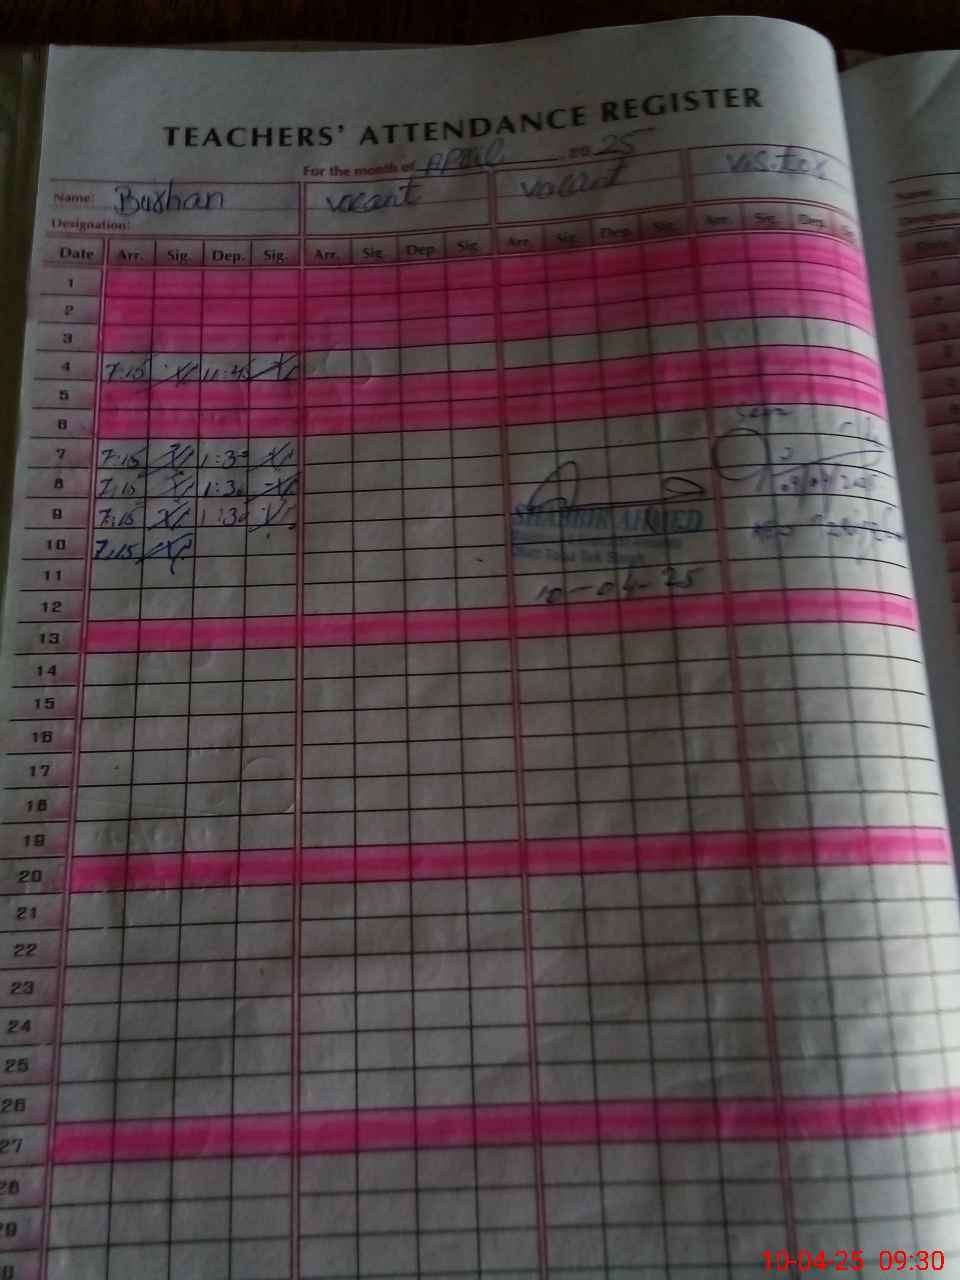 TEACHERS' ATTENDANCE REGISTER
For the month of April 20 25
Name: Burhan vacant vacant visitor
Designation:
Date Arr. Sig. Dep. Sig. Arr. Sig. Dep. Sig. Arr. Sig. Dep. Sig. Arr. Sig. Dep.
1
2
3
4 7:15 11:45
5
6
7 7:15 1:30
8 7:15 1:30 09/04/2025
9 7:15 1:30 SHABBIR AHMED
10 7:15
11
10-04-25
12
13
14
15
16
17
18
19
20
21
22
23
24
25
26
27
28
29
10-04-25 09:30